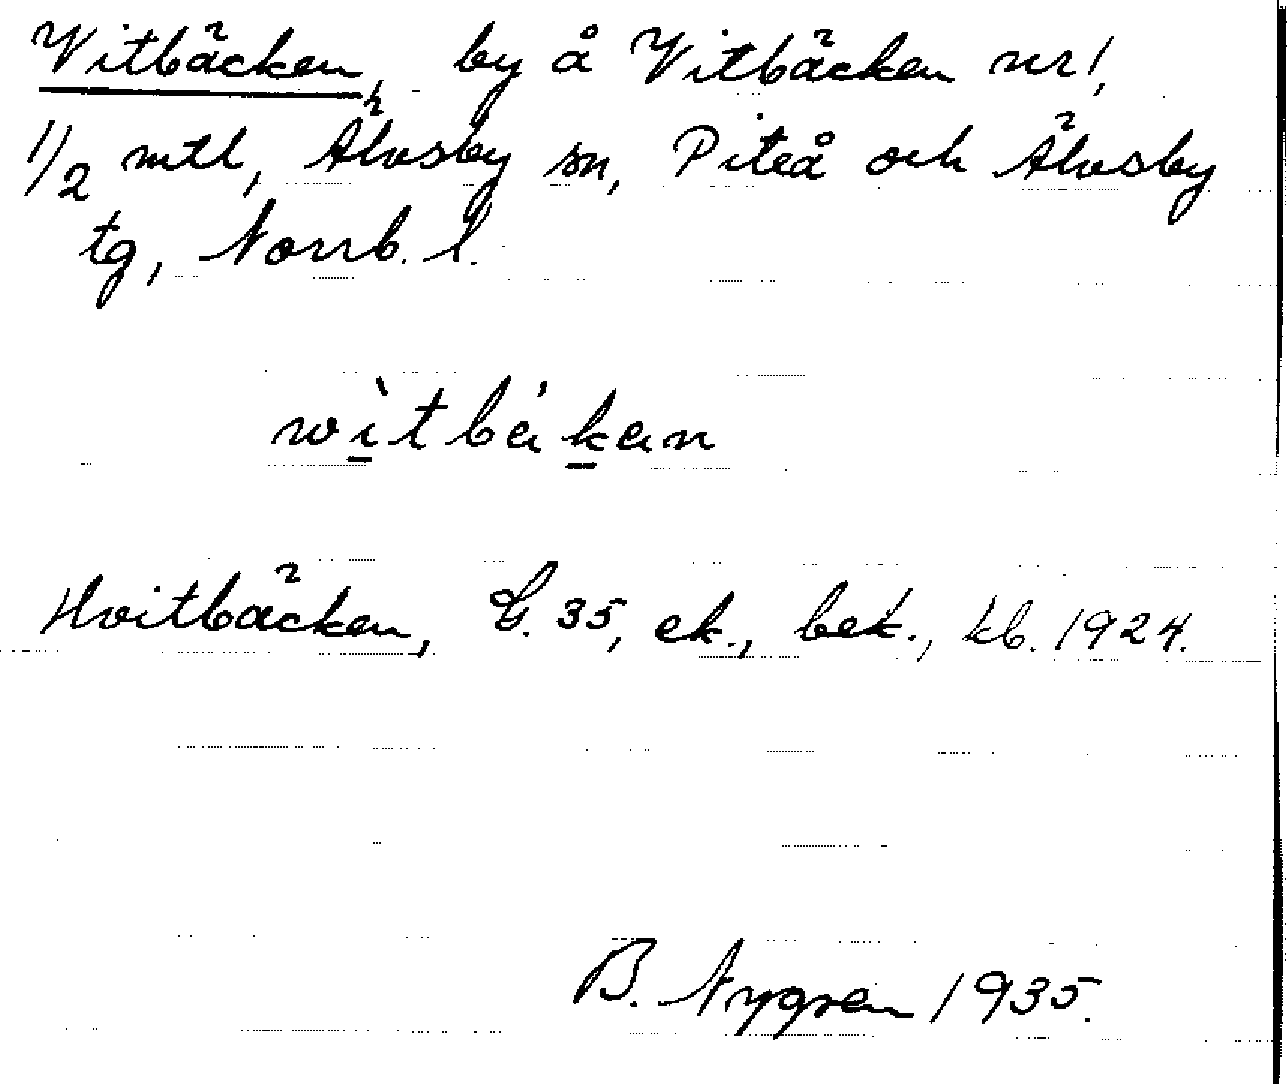 Vitbäcken, by å Vitbäcken nr 1,
1/2 mtl, Älvsby sn, Piteå och Älvsby
tg, Norrb. l.
wìtbä́kän
Hvitbäcken, G. 35, ek., bek., kb. 1924.
B. Nygren 1935.